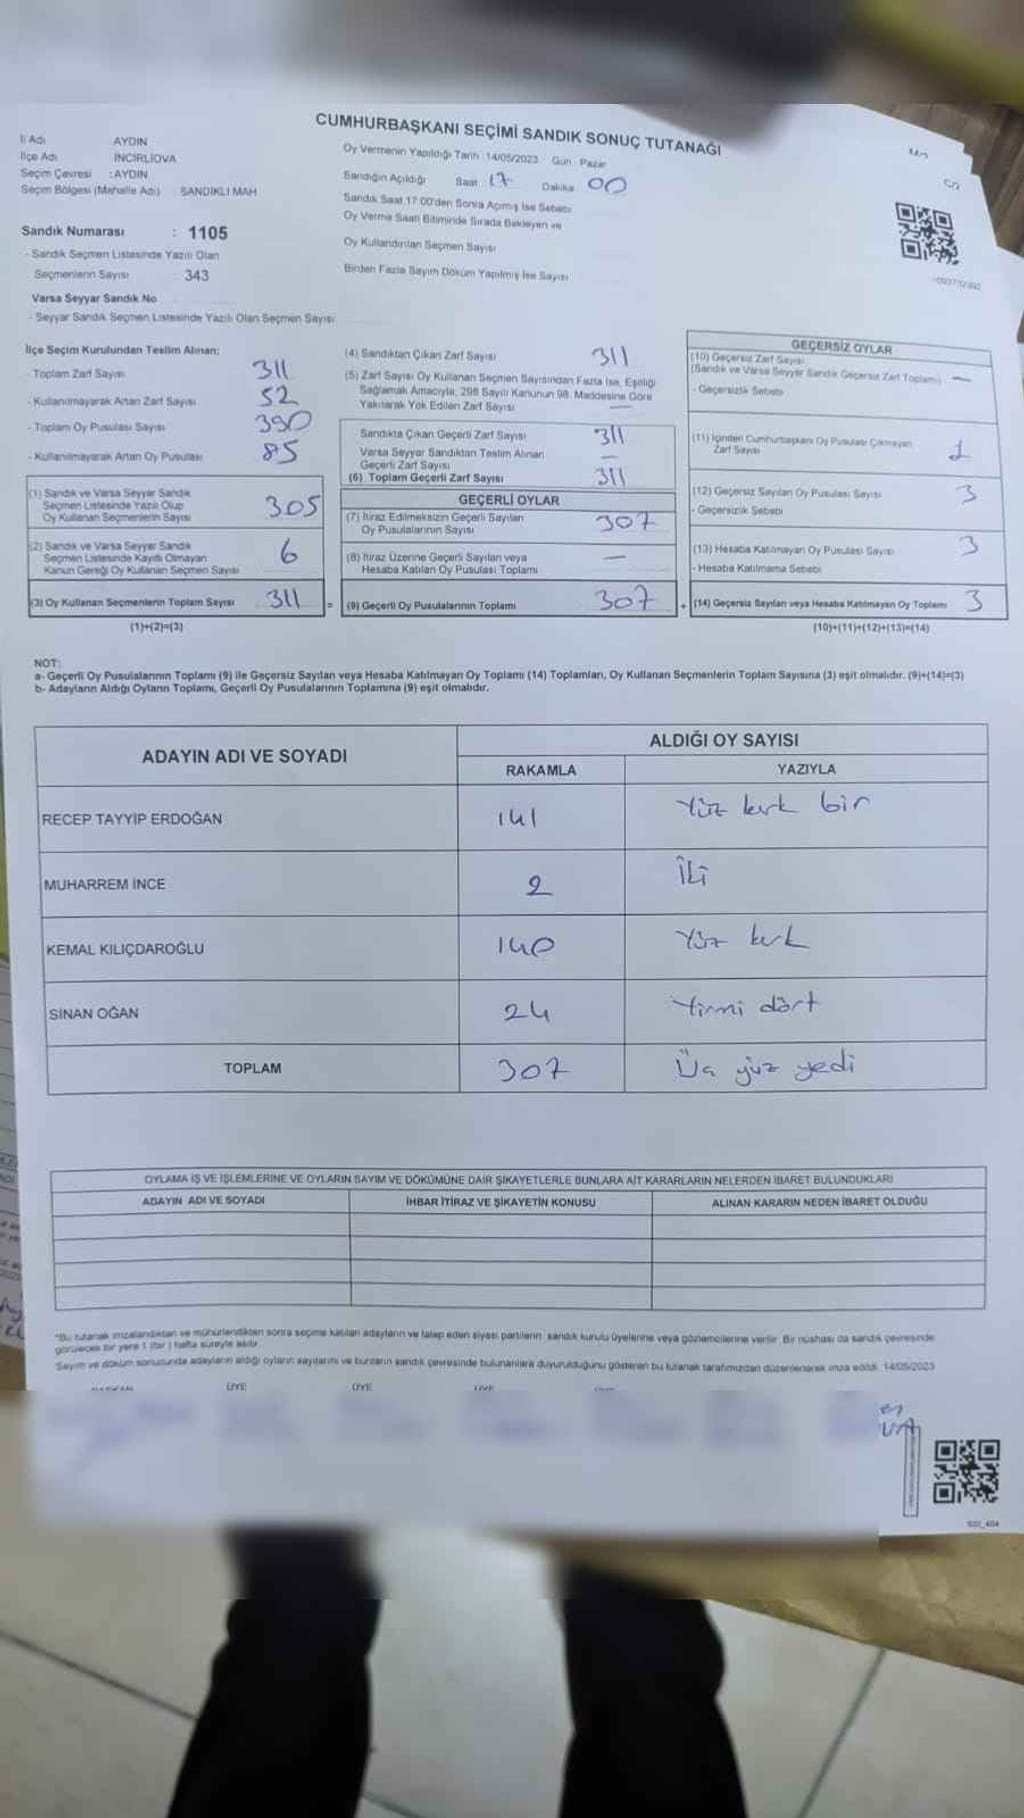 CUMHURBAŞKANI SEÇİMİ SANDIK SONUÇ TUTANAĞI
İl Adı AYDIN
İlçe Adı İNCİRLİOVA
Seçim Çevresi : AYDIN
Seçim Bölgesi (Mahalle Adı) SANDIKLI MAH.
Sandık Numarası : 1105
- Sandık Seçmen Listesinde Yazılı Olan
Seçmenlerin Sayısı 343
Varsa Seyyar Sandık No
- Seyyar Sandık Seçmen Listesinde Yazılı Olan Seçmen Sayısı
Oy Vermenin Yapıldığı Tarih : 14/05/2023 Gün : Pazar
Sandığın Açıldığı Saat : 17 Dakika 00
Sandık Saat 17:00'den Sonra Açılmış İse Sebebi
Oy Verme Saati Bitiminde Sırada Bekleyen ve
Oy Kullandırılan Seçmen Sayısı
Birden Fazla Sayım Döküm Yapılmış İse Sayısı
İlçe Seçim Kurulundan Teslim Alınan:
- Toplam Zarf Sayısı 311
- Kullanılmayarak Artan Zarf Sayısı 52
- Toplam Oy Pusulası Sayısı 390
- Kullanılmayarak Artan Oy Pusulası 85
(1) Sandık ve Varsa Seyyar Sandık
Seçmen Listesinde Yazılı Olup
Oy Kullanan Seçmenlerin Sayısı 305
(2) Sandık ve Varsa Seyyar Sandık
Seçmen Listesinde Kayıtlı Olmayan
Kanun Gereği Oy Kullanan Seçmen Sayısı 6
(3) Oy Kullanan Seçmenlerin Toplam Sayısı 311 =
(1)+(2)=(3)
(4) Sandıktan Çıkan Zarf Sayısı 311
(5) Zarf Sayısı Oy Kullanan Seçmen Sayısından Fazla İse, Eşitliği
Sağlamak Amacıyla, 298 Sayılı Kanunun 98. Maddesine Göre
Yakılarak Yok Edilen Zarf Sayısı —
Sandıkta Çıkan Geçerli Zarf Sayısı 311
Varsa Seyyar Sandıktan Teslim Alınan
Geçerli Zarf Sayısı —
(6) Toplam Geçerli Zarf Sayısı 311
GEÇERLİ OYLAR
(7) İtiraz Edilmeksizin Geçerli Sayılan
Oy Pusulalarının Sayısı 307
(8) İtiraz Üzerine Geçerli Sayılan veya
Hesaba Katılan Oy Pusulası Toplamı —
(9) Geçerli Oy Pusulalarının Toplamı 307 +
GEÇERSİZ OYLAR
(10) Geçersiz Zarf Sayısı
(Sandık ve Varsa Seyyar Sandık Geçersiz Zarf Toplamı) —
- Geçersizlik Sebebi
(11) İçinden Cumhurbaşkanı Oy Pusulası Çıkmayan
Zarf Sayısı 1
(12) Geçersiz Sayılan Oy Pusulası Sayısı 3
- Geçersizlik Sebebi
(13) Hesaba Katılmayan Oy Pusulası Sayısı 3
- Hesaba Katılmama Sebebi
(14) Geçersiz Sayılan veya Hesaba Katılmayan Oy Toplamı 3
(10)+(11)+(12)+(13)=(14)
NOT:
a- Geçerli Oy Pusulalarının Toplamı (9) ile Geçersiz Sayılan veya Hesaba Katılmayan Oy Toplamı (14) Toplamları, Oy Kullanan Seçmenlerin Toplam Sayısına (3) eşit olmalıdır. (9)+(14)=(3)
b- Adayların Aldığı Oyların Toplamı, Geçerli Oy Pusulalarının Toplamına (9) eşit olmalıdır.
ADAYIN ADI VE SOYADI ALDIĞI OY SAYISI
RAKAMLA YAZIYLA
RECEP TAYYİP ERDOĞAN 141 Yüz kırk bir
MUHARREM İNCE 2 İki
KEMAL KILIÇDAROĞLU 140 Yüz kırk
SİNAN OĞAN 24 Yirmi dört
TOPLAM 307 Üç yüz yedi
OYLAMA İŞ VE İŞLEMLERİNE VE OYLARIN SAYIM VE DÖKÜMÜNE DAİR ŞİKAYETLERLE BUNLARA AİT KARARLARIN NELERDEN İBARET BULUNDUKLARI
ADAYIN ADI VE SOYADI İHBAR İTİRAZ VE ŞİKAYETİN KONUSU ALINAN KARARIN NEDEN İBARET OLDUĞU
*Bu tutanak imzalandıktan ve mühürlendikten sonra seçime katılan adayların ve talep eden siyasi partilerin sandık kurulu üyelerine veya gözlemcilerine verilir. Bir nüshası da sandık çevresinde
görülecek bir yere 1 (bir) hafta süreyle asılır.
Sayım ve döküm sonucunda adayların aldığı oyların sayılarını ve bunların sandık çevresinde bulunanlara duyurulduğunu gösteren bu tutanak tarafımızdan düzenlenerek imza edildi. 14/05/2023
BAŞKAN ÜYE ÜYE ÜYE